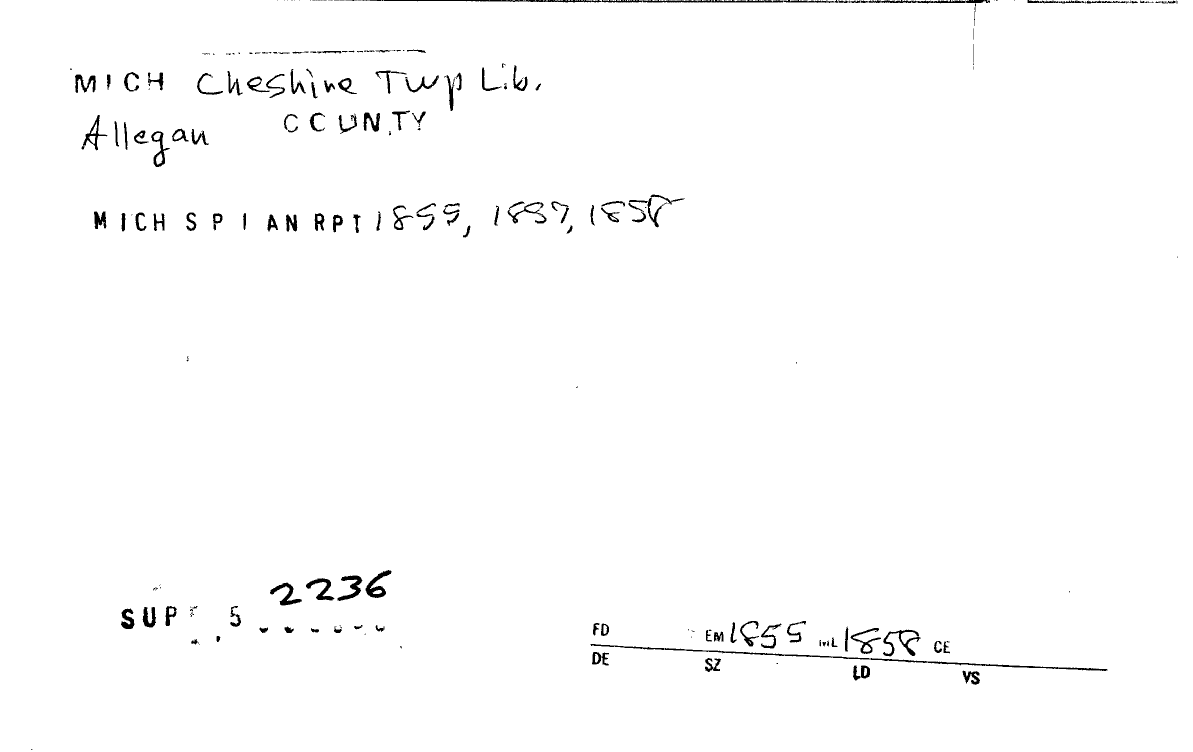 MICH Cheshire Twp Lib.
Allegan CCUNTY
MICH S P I AN RPT 1855, 1857, 1858
2236
SUP 5
FD EM 1855 ML 1858 CE
DE SZ LD VS